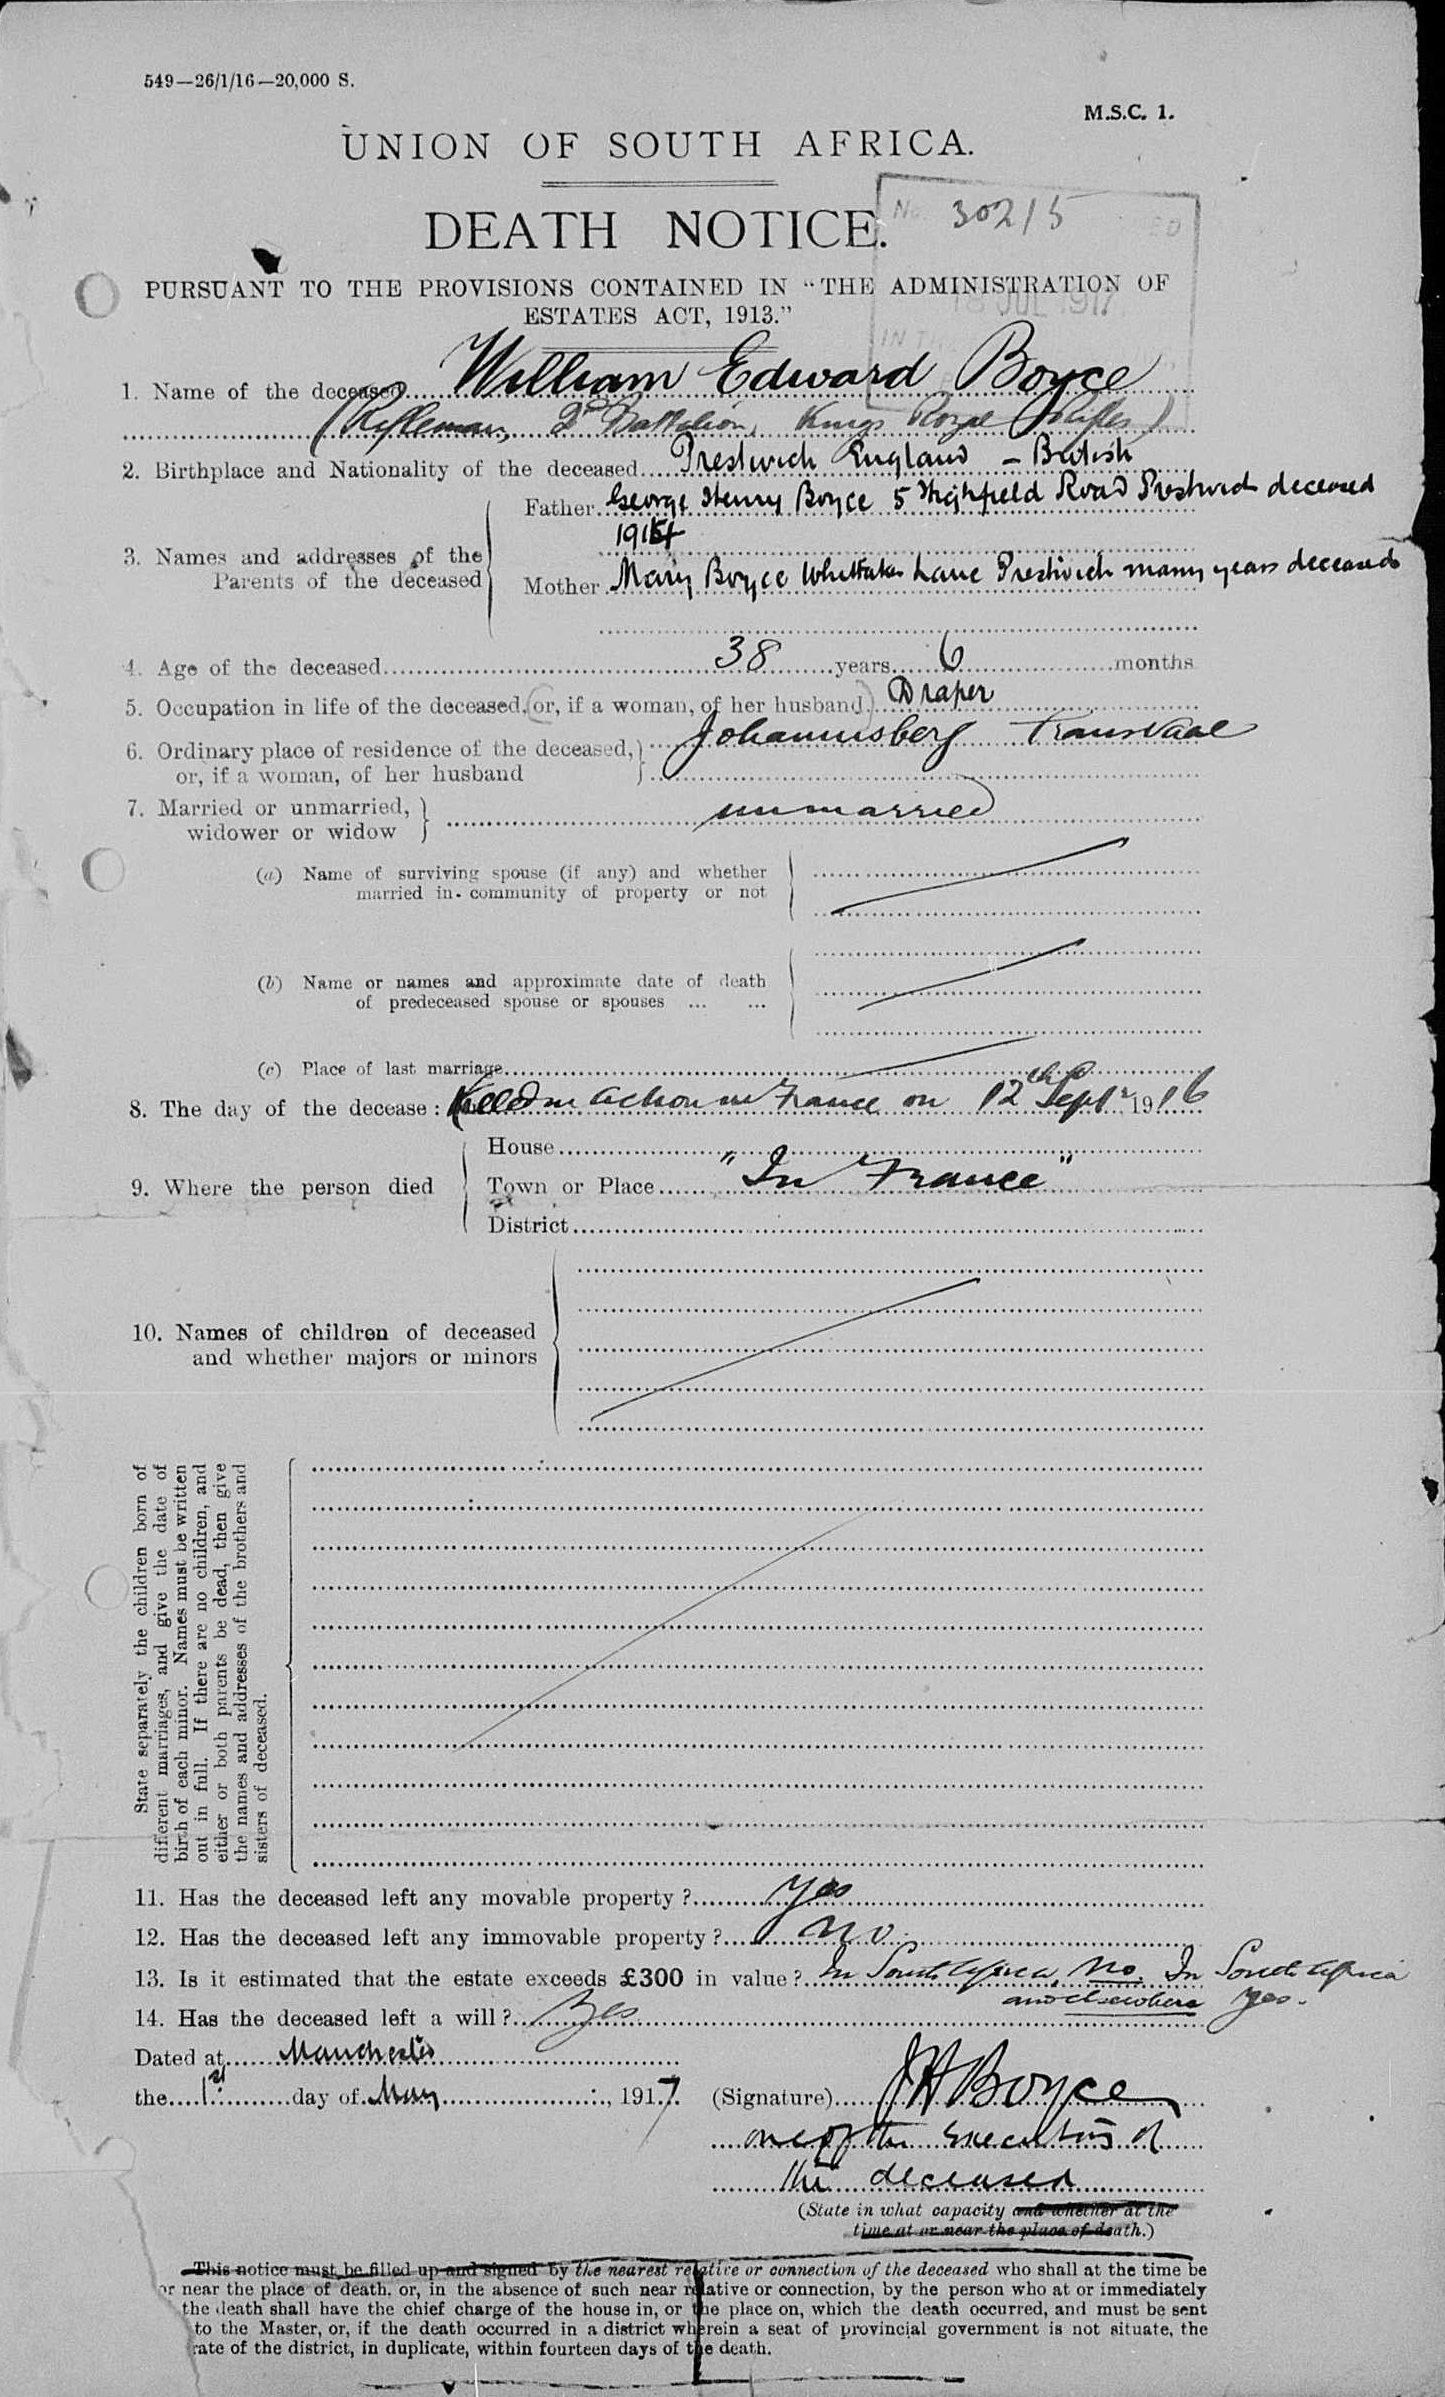 549—26/1/16—20,000 S.
M.S.C. 1.
UNION OF SOUTH AFRICA.
No. 30215
DEATH NOTICE.
PURSUANT TO THE PROVISIONS CONTAINED IN "THE ADMINISTRATION OF
ESTATES ACT, 1913."
18 JUL 1917
1. Name of the deceased William Edward Boyce
(Rifleman, Battalion, Kings Royal Rifles)
2. Birthplace and Nationality of the deceased Prestwich England – British
3. Names and addresses of the Parents of the deceased
Father George Henry Boyce 5 Highfield Road Prestwich deceased
1914
Mother Mary Boyce Whittaker Lane Prestwich many years deceased
4. Age of the deceased 38 years 6 months
5. Occupation in life of the deceased, (or, if a woman, of her husband) Draper
6. Ordinary place of residence of the deceased, Johannesberg Transvaal
or, if a woman, of her husband
7. Married or unmarried, unmarried
widower or widow
(a) Name of surviving spouse (if any) and whether
married in community of property or not
(b) Name or names and approximate date of death
of predeceased spouse or spouses ... ...
(c) Place of last marriage
8. The day of the decease: Killed in action in France on 12th Septr 1916
9. Where the person died
House
Town or Place "In France"
District
10. Names of children of deceased
and whether majors or minors
State separately the children born of
different marriages, and give the date of
birth of each minor. Names must be written
out in full. If there are no children, and
either or both parents be dead, then give
the names and addresses of the brothers and
sisters of deceased.
11. Has the deceased left any movable property? Yes
12. Has the deceased left any immovable property? No
13. Is it estimated that the estate exceeds £300 in value? In South Africa, No. In South Africa
and elsewhere Yes.
14. Has the deceased left a will? Yes
Dated at Manchester
the 1st day of May, 1917. (Signature) J H Boyce
one of the executors of
the deceased
(State in what capacity and whether at the
time at or near the place of death.)
This notice must be filled up and signed by the nearest relative or connection of the deceased who shall at the time be
or near the place of death, or, in the absence of such near relative or connection, by the person who at or immediately
the death shall have the chief charge of the house in, or the place on, which the death occurred, and must be sent
to the Master, or, if the death occurred in a district wherein a seat of provincial government is not situate, the
rate of the district, in duplicate, within fourteen days of the death.